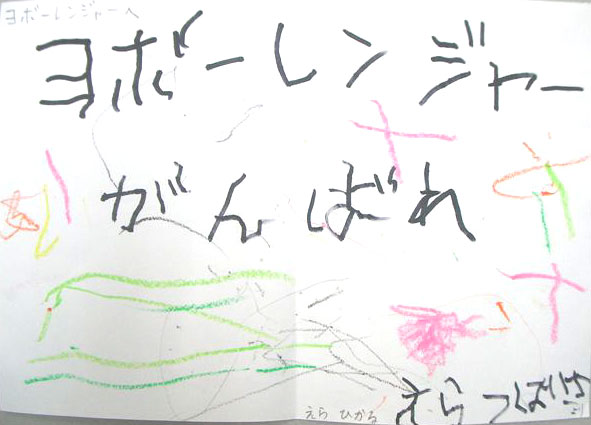 ヨボーレンジャーへ
ヨボーレンジャー
がんばれ
えら つばさ
えら ひかる